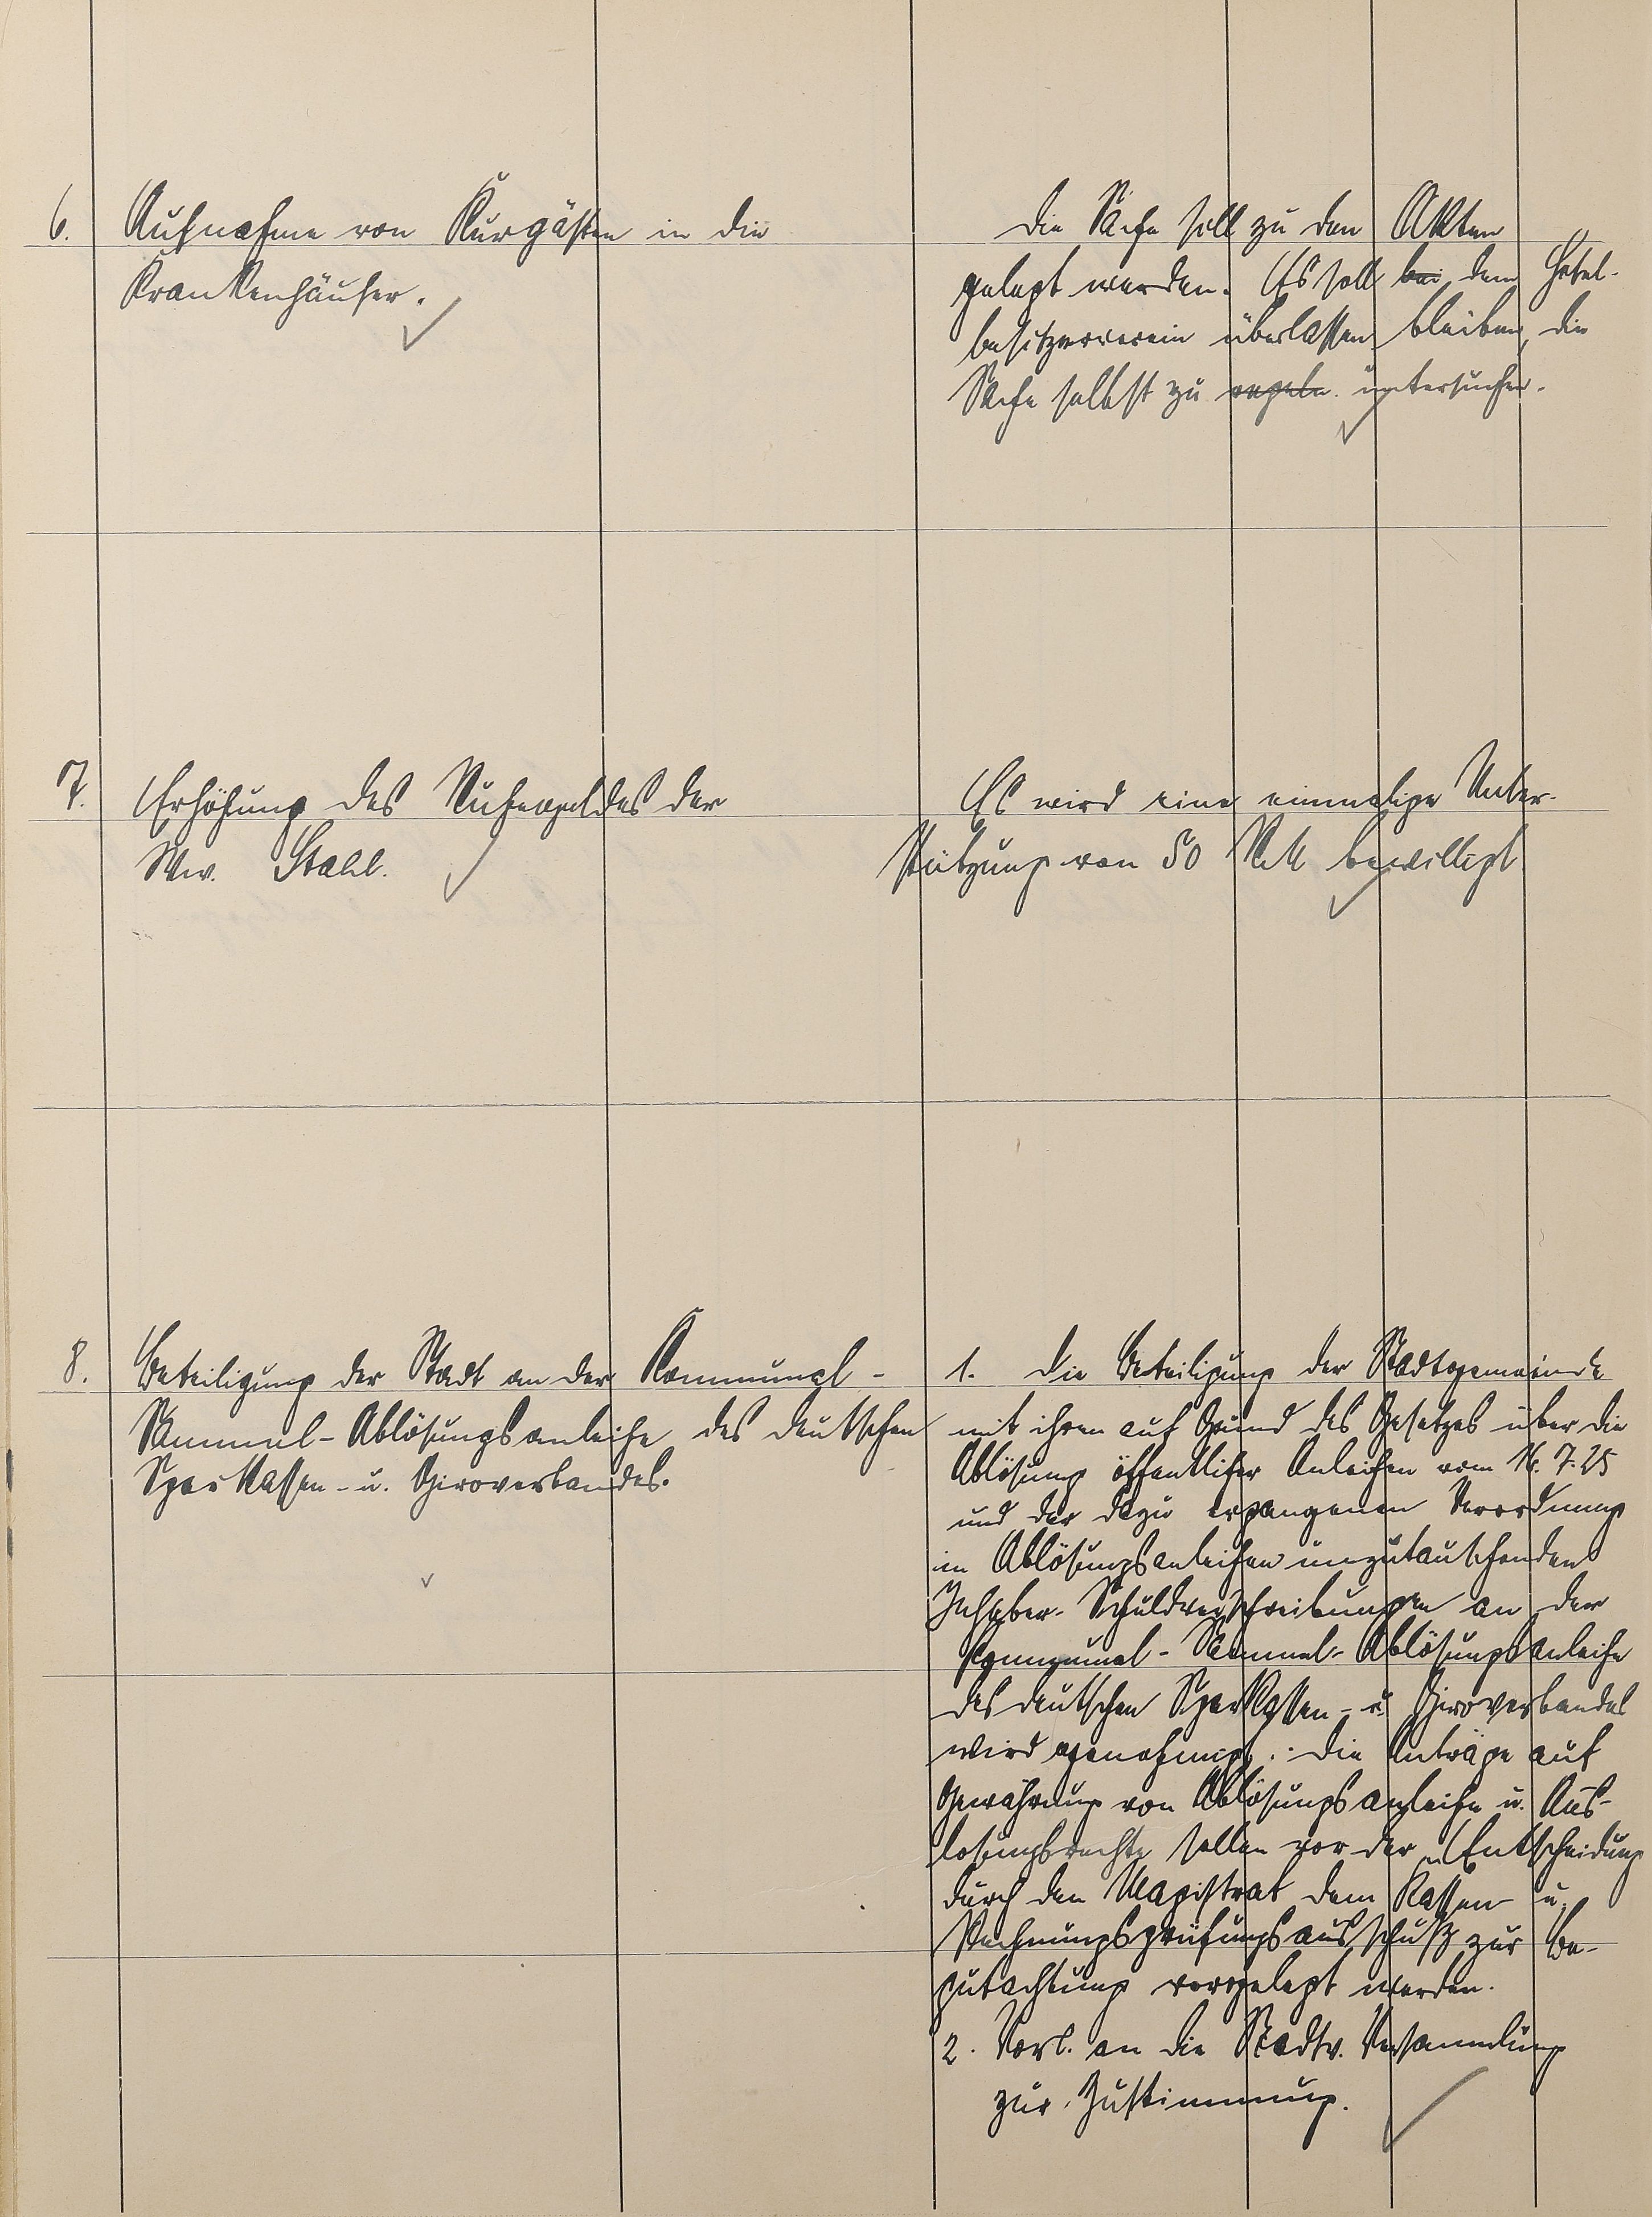 6.
Aufnahme von Kurgästen in die
Krankenhäuser.
Die Sache soll zu den Akten
gelegt werden. Es soll bei dem Hotel-
besitzerverein überlassen bleiben, die
Sache selbst zu regeln. untersuchen.
7.
Erhöhung des Ruhegeldes der
Ww. Stahl.
Es wird eine einmalige Unter-
stützung von 50 RM bewilligt
8.
Beteiligung der Stadt an der Kommunal-
Sammel-Ablösungsanleihe des deutschen
Sparkassen- u. Giroverbandes.
1. Die Beteiligung der Stadtgemeinde
mit ihren auf Grund des Gesetzes über die
Ablösung öffentlicher Anleihen vom 16. 7. 25
und der dazu ergangenen Verordnung
in Ablösungsanleihen umzutauschenden
Inhaber-Schuldverschreibungen an der
Kommunal-Sammel-Ablösungsanleihe
des deutschen Sparkassen- u. Giroverbandes
wird genehmigt. Die Anträge auf
Gewährung von Ablösungsanleihe u. Aus-
losungsrechte sollen vor der Entscheidung
durch den Magistrat dem Kassen u.
Rechnungsprüfungsausschuß zur Be-
gutachtung vorgelegt werden.
2. Vorl. an die Stadtv. Versammlung
zur Zustimmung.